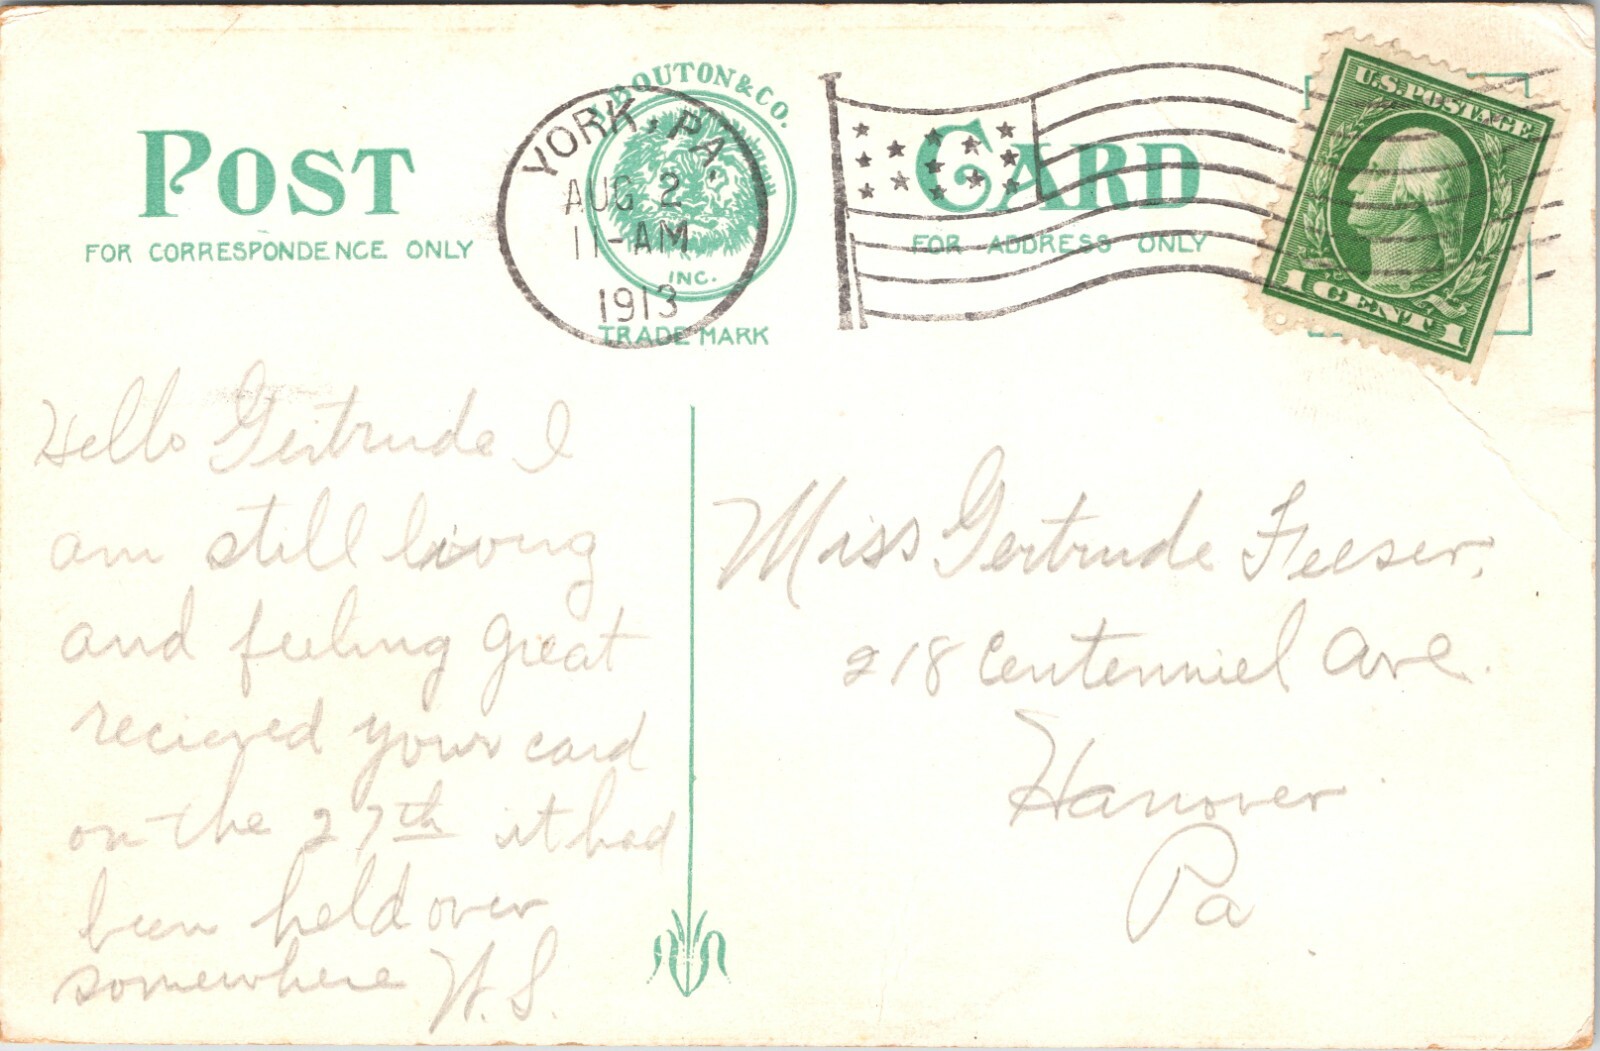 POST CARD
FOR CORRESPONDENCE ONLY
FOR ADDRESS ONLY
BOUTON & CO.
INC.
TRADE MARK
YORK, PA.
AUG 2
11-AM
1913
U.S. POSTAGE
1 CENT 1
Hello Gertrude I
am still living
and feeling great
recieved your card
on the 27th it had
been held over
somewhere W. S.
Miss Gertrude Feeser,
218 Centenniel Ave.
Hanover
Pa